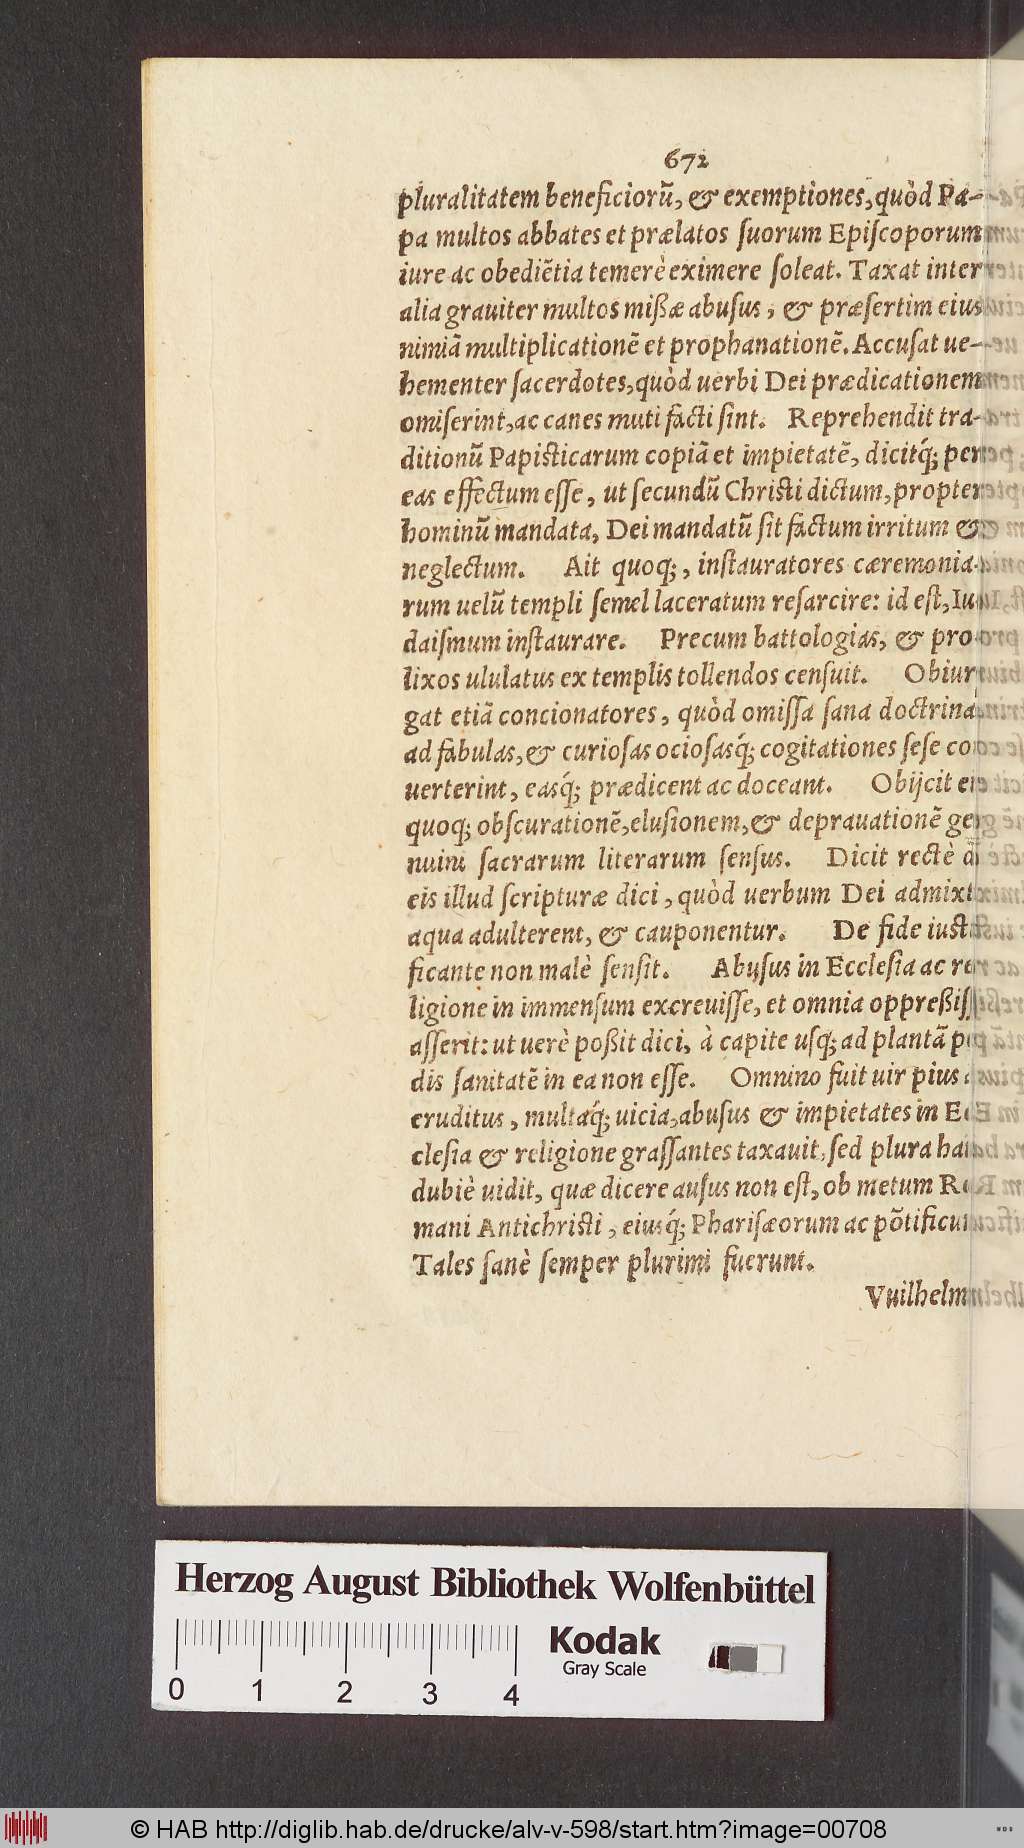 672
pluralitatem beneficiorũ, & exemptiones, quòd Pa-
pa multos abbates et prælatos ſuorum Epiſcoporum
iure ac obediẽtia temerè eximere ſoleat. Taxat inter
alia grauiter multos mißæ abuſus, & præſertim eius
nimiã multiplicationẽ et prophanationẽ. Accuſat ue-
hementer ſacerdotes, quòd uerbi Dei prædicationem
omiſerint, ac canes muti facti ſint. Reprehendit tra-
ditionũ Papiſticarum copiã et impietatẽ, dicitq́; per
eas effectum eſſe, ut ſecundũ Chriſti dictum, propter
hominũ mandata, Dei mandatũ ſit factum irritum &
neglectum. Ait quoq;, inſtauratores cæremonia-
rum uelũ templi ſemel laceratum reſarcire: id eſt, Iu-
daiſmum inſtaurare. Precum battologias, & pro-
lixos ululatus ex templis tollendos cenſuit. Obiur
gat etiã concionatores, quòd omiſſa ſana doctrina,
ad fabulas, & curioſas ocioſasq́; cogitationes ſeſe co
uerterint, easq́; prædicent ac doceant. Obijcit eis
quoq; obſcurationẽ, eluſionem, & deprauationẽ ge
nuini ſacrarum literarum ſenſus. Dicit rectè
eis illud ſcripturæ dici, quòd uerbum Dei admixt
aqua adulterent, & cauponentur. De fide iuſti
ficante non malè ſenſit. Abuſus in Eccleſia ac re
ligione in immenſum excreuiſſe, et omnia oppreßiſ
aſſerit: ut uerè poßit dici, à capite uſq; ad plantã pe
dis ſanitatẽ in ea non eſſe. Omnino fuit uir pius
eruditus, multaq́; uicia, abuſus & impietates in Ec
cleſia & religione graſſantes taxauit, ſed plura hau
dubiè uidit, quæ dicere auſus non eſt, ob metum Ro
mani Antichriſti, eiusq́; Phariſæorum ac põtificum
Tales ſanè ſemper plurimi fuerunt.
Vuilhelm
Herzog August Bibliothek Wolfenbüttel
Kodak
Gray Scale
0 1 2 3 4
© HAB http://diglib.hab.de/drucke/alv-v-598/start.htm?image=00708